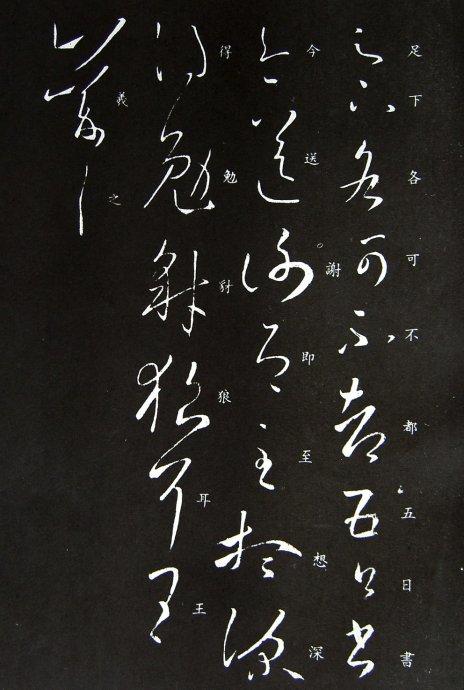 足下各可不都五日書
今送謝即至想深
得勉豺狼耳王
義之